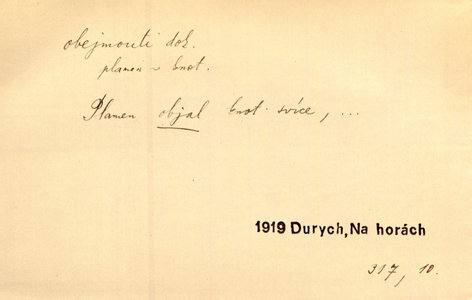 obejmouti dok.
plamen ~ knot.
Plamen objal knot svíce, ...
1919 Durych, Na horách
317, 10.